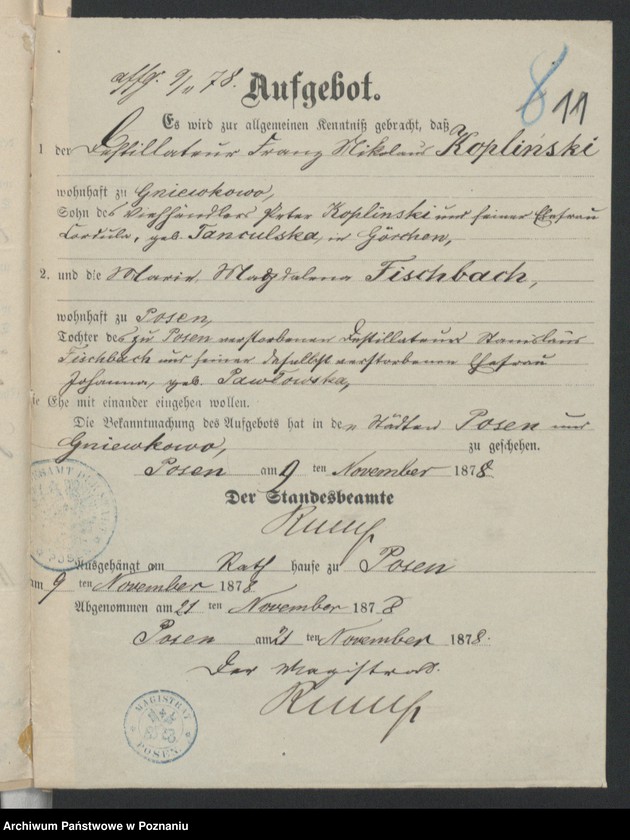 affg. 9/11 78.
8 11
Aufgebot.
Es wird zur allgemeinen Kenntniß gebracht, daß
1 der Destillateur Franz Nikolaus Kopliński
wohnhaft zu Gniewkowo,
Sohn des Viehhändlers Peter Koplinski und seiner Ehefrau
Cordula, geb. Tanculska, in Görchen,
2. und die Marie Magdalena Fischbach,
wohnhaft zu Posen,
Tochter des zu Posen verstorbenen Destillateur Stanislaus
Fischbach und seiner daselbst verstorbenen Ehefrau
Johanna, geb. Pawłowska,
ie Ehe mit einander eingehen wollen.
Die Bekanntmachung des Aufgebots hat in den Städten Posen und
Gniewkowo, zu geschehen.
Posen am 9 ten November 1878
Der Standesbeamte
Ausgehängt am Rathhause zu Posen
am 9 ten November 1878
Abgenommen am 21 ten November 1878
Posen am 21 ten November 1878.
Der Magistrat.
MAGISTRAT
POSEN
Archiwum Państwowe w Poznaniu